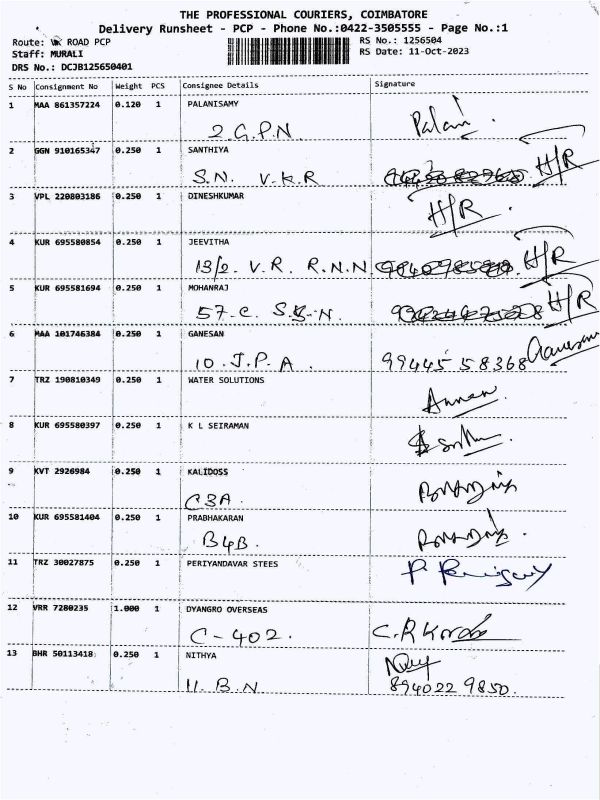 THE PROFESSIONAL COURIERS, COIMBATORE
Delivery Runsheet - PCP - Phone No.:0422-3505555 - Page No.:1
Route: VK ROAD PCP
RS No.: 1256504
Staff: MURALI
RS Date: 11-Oct-2023
DRS No.: DCJB125650401
S No Consignment No Weight PCS Consignee Details Signature
1 MAA 861357224 0.120 1 PALANISAMY
2 G.P.N. Palani
2 GGN 910165347 0.250 1 SANTHIYA
S.N. V.K.R H/R
3 VPL 220803186 0.250 1 DINESHKUMAR
H/R
4 KUR 695580854 0.250 1 JEEVITHA
13/2. V.R. R.N.N H/R
5 KUR 695581694 0.250 1 MOHANRAJ
57-C. S.S.N. H/R
6 MAA 101746384 0.250 1 GANESAN
10. J.P.A. 99445 58368 Ganesan
7 TRZ 190810349 0.250 1 WATER SOLUTIONS
8 KUR 695580397 0.250 1 K L SEIRAMAN
9 KVT 2926984 0.250 1 KALIDOSS
C3A.
10 KUR 695581404 0.250 1 PRABHAKARAN
B4B.
11 TRZ 30027875 0.250 1 PERIYANDAVAR STEES
12 VRR 7280235 1.000 1 DYANGRO OVERSEAS
C-402.
13 BHR 50113418 0.250 1 NITHYA
11. B.N 894022 9850.